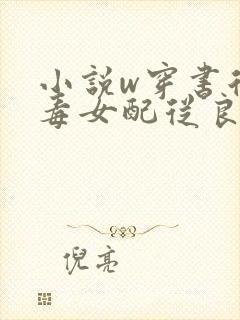 小説w穿書後
毒女配從良
倪亮